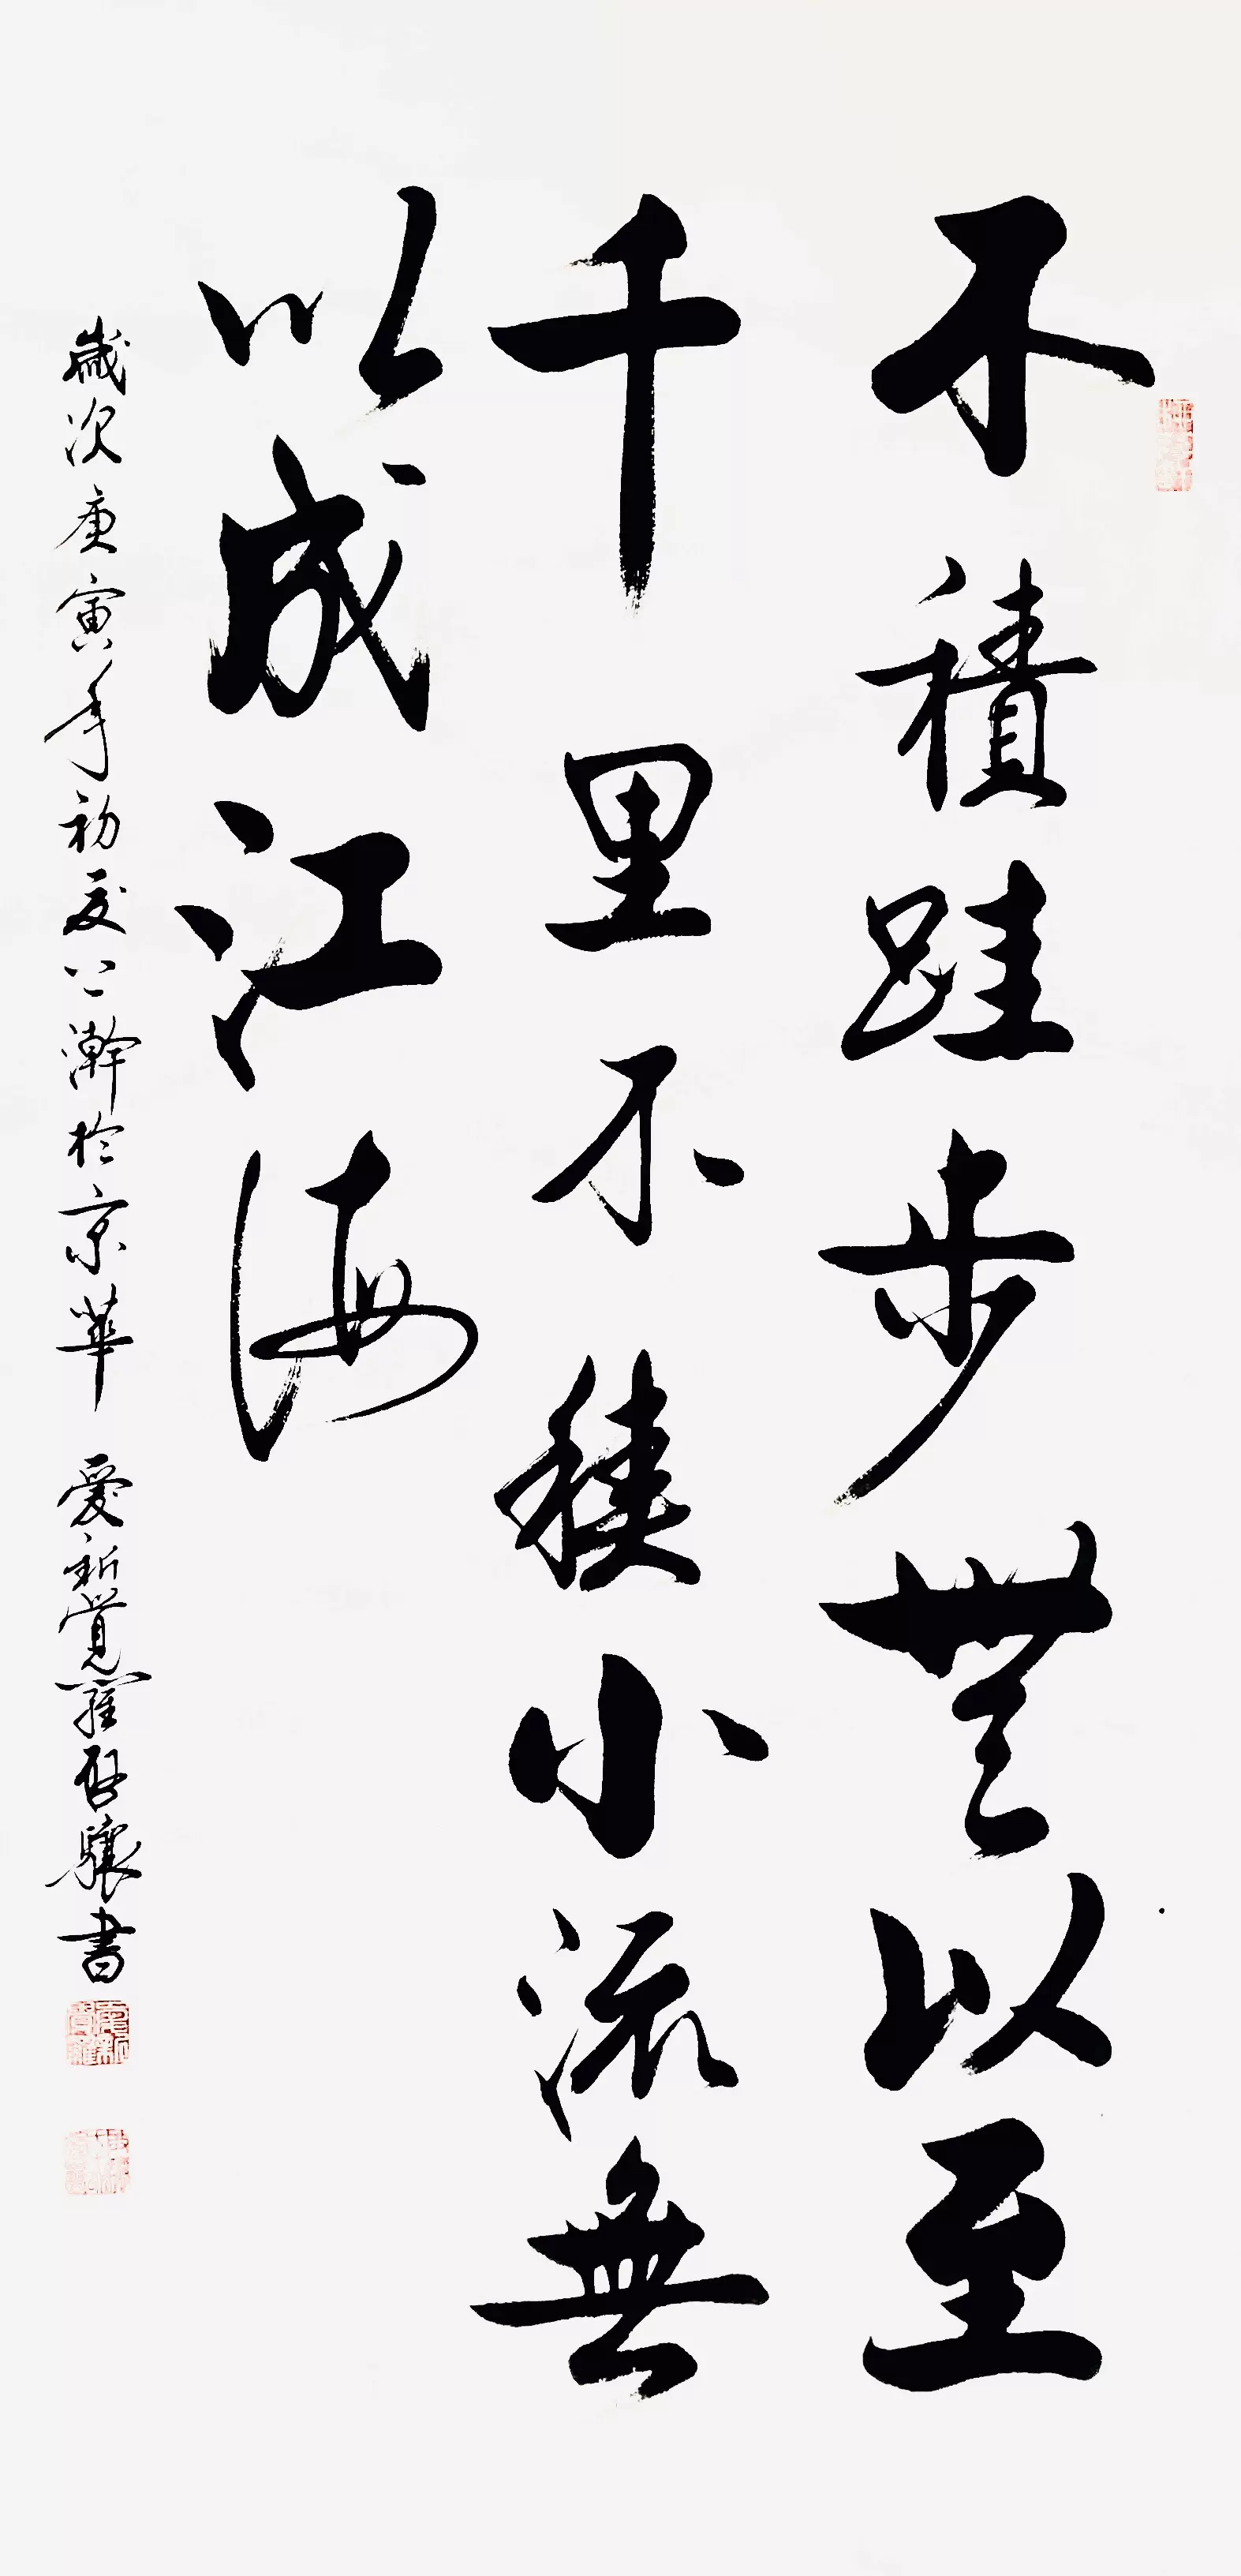 不積跬步無以至
千里不積小流無
以成江海
歲次庚寅年初夏上澣於京華 愛新覺羅啓驤書